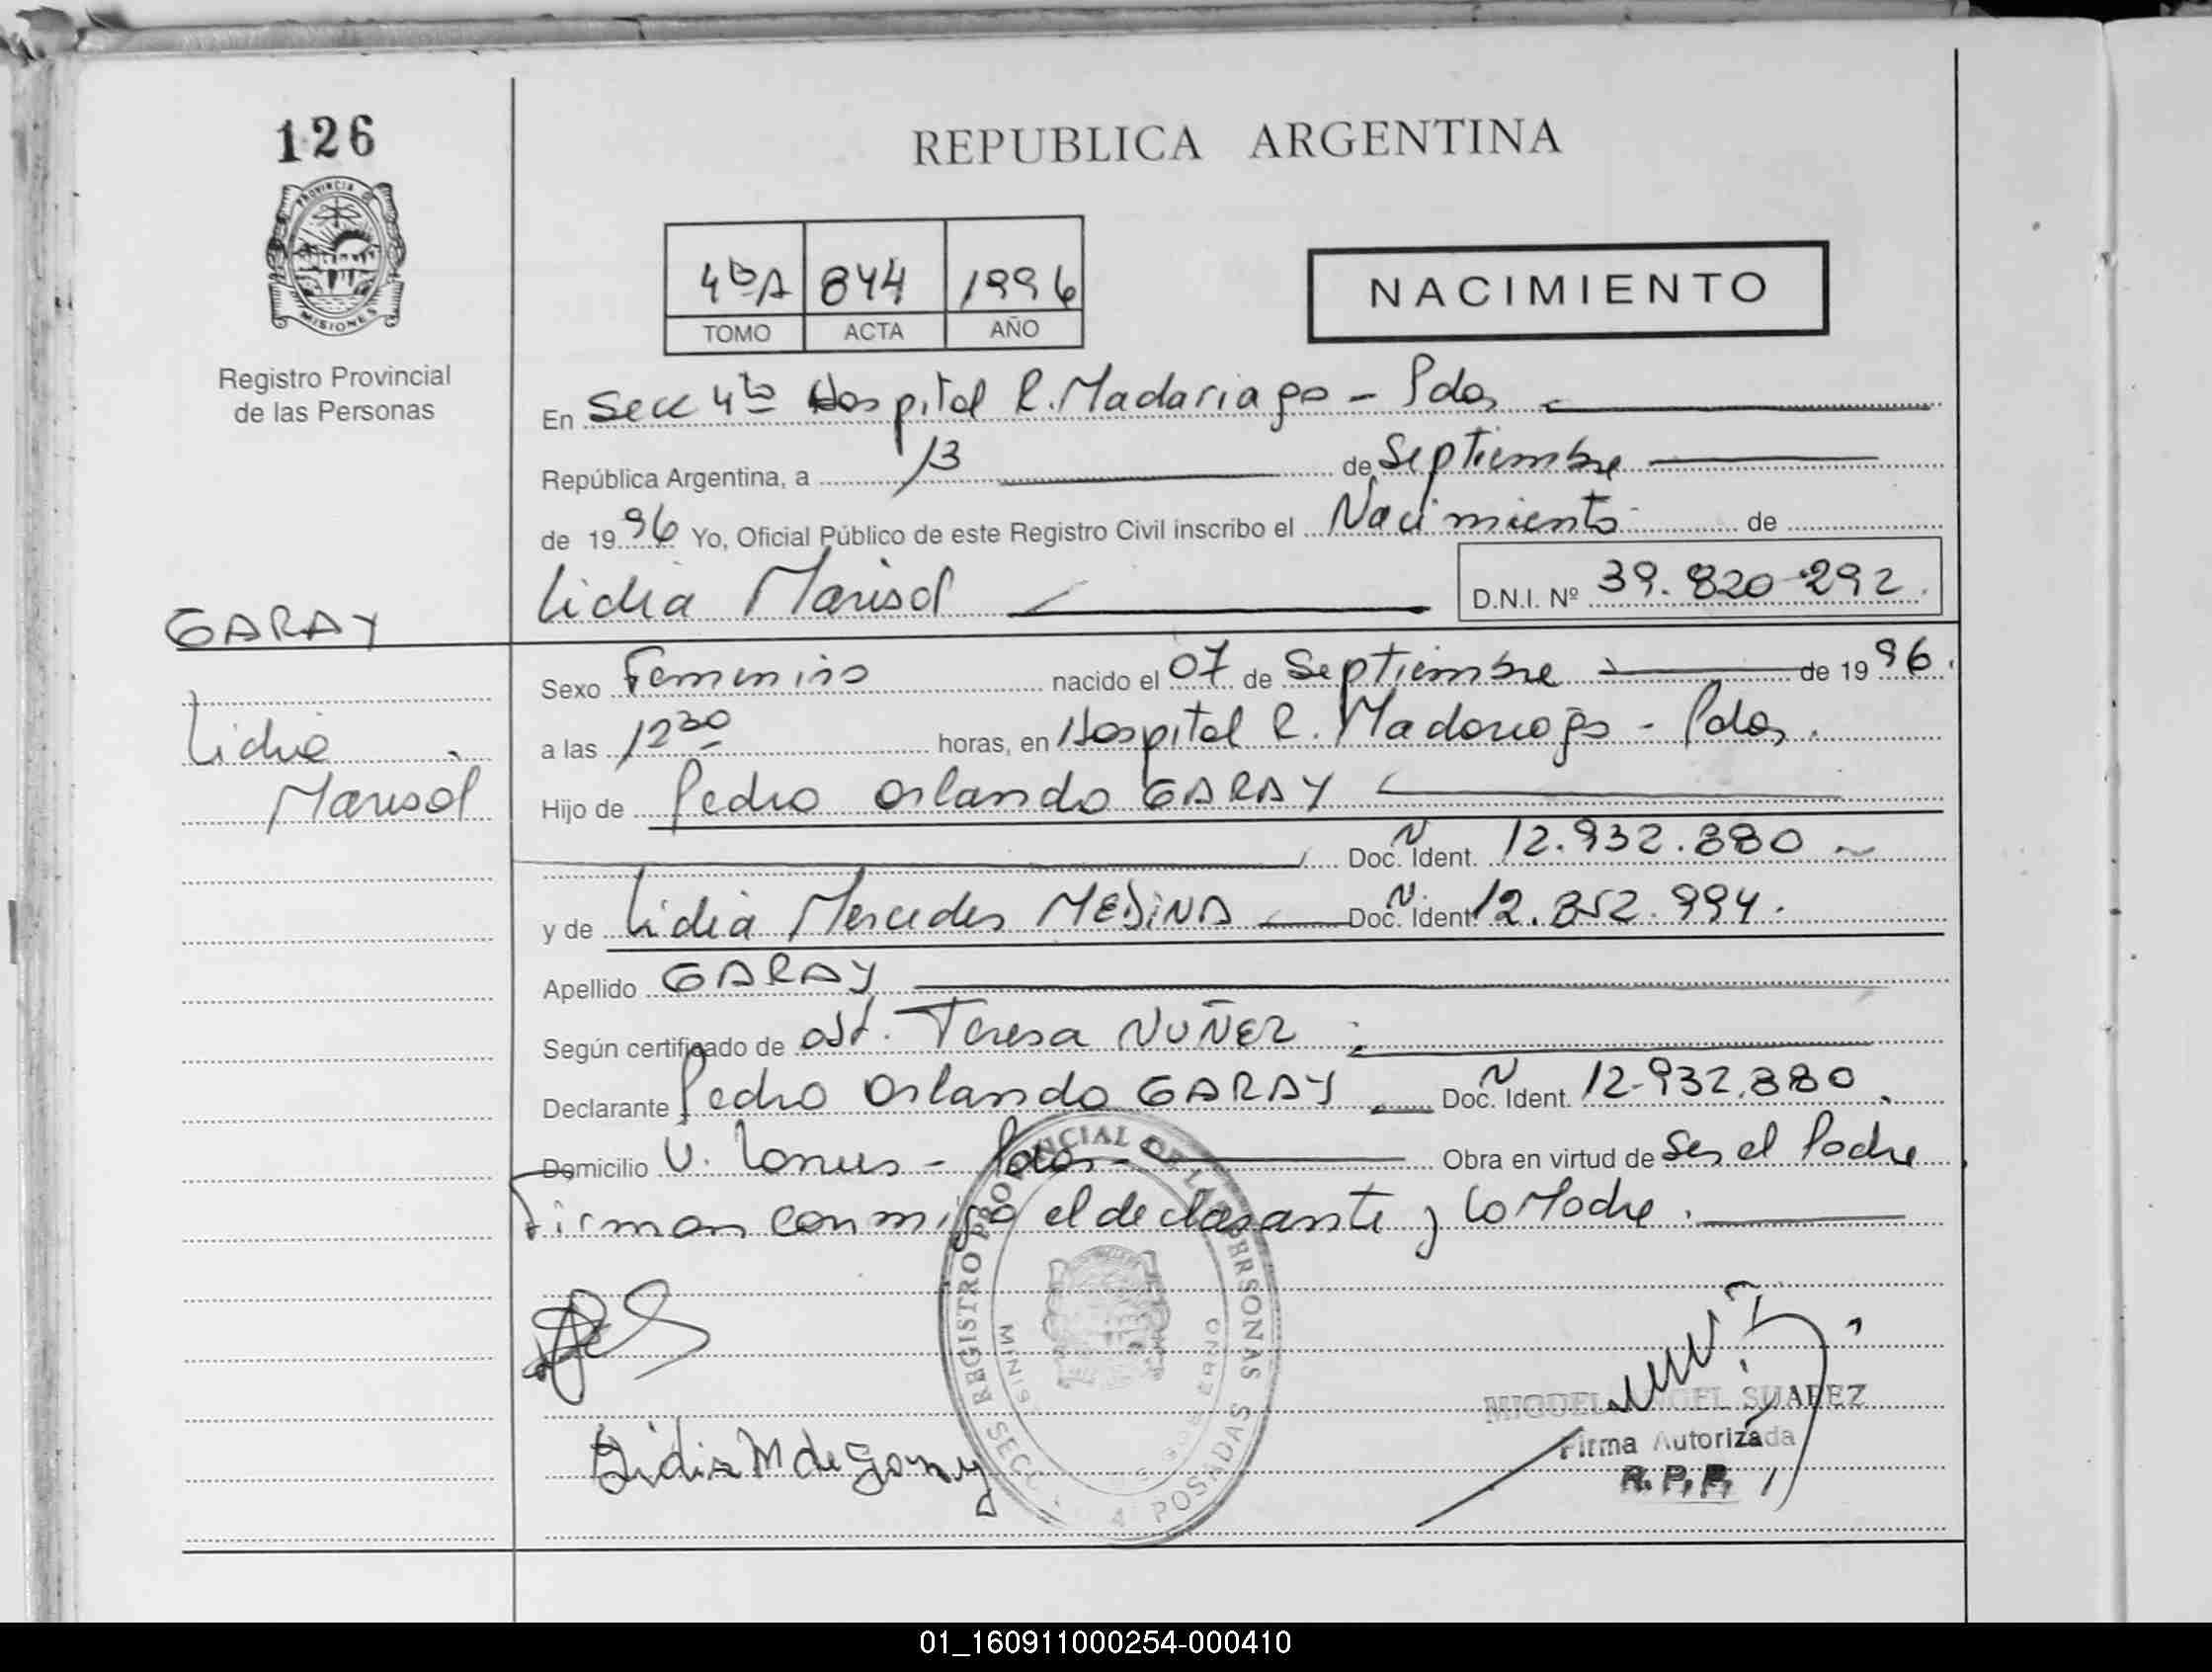 126
PROVINCIA DE
MISIONES
Registro Provincial
de las Personas
GARAY
Lidia
Marisol
REPUBLICA ARGENTINA
4ta A 844 1996
TOMO ACTA AÑO
NACIMIENTO
En Secc 4ta Hospital R. Madariaga - Pdas
República Argentina, a 13 de Septiembre
de 1996 Yo, Oficial Público de este Registro Civil inscribo el Nacimiento de
Lidia Marisol D.N.I. Nº 39.820.292
Sexo Femenino nacido el 07 de Septiembre de 1996.
a las 12 30 horas, en Hospital R. Madariaga - Pdas.
Hijo de Pedro Orlando GARAY
Doc. Ident. 12.932.880
y de Lidia Mercedes MEDINA Doc. Ident. 12.852.994.
Apellido GARAY
Según certificado de Ost. Teresa NUÑEZ
Declarante Pedro Orlando GARAY Doc. Ident. 12.932.880
Domicilio V. Lanus - Pdas - Obra en virtud de Ser el Padre
Firman conmigo el declarante y la Madre.
REGISTRO PROVINCIAL DE LAS PERSONAS
SECC. 4 POSADAS
MIGUEL ANGEL SUAREZ
Firma Autorizada
R.P.P.
Lidia M de Garay
01_160911000254-000410